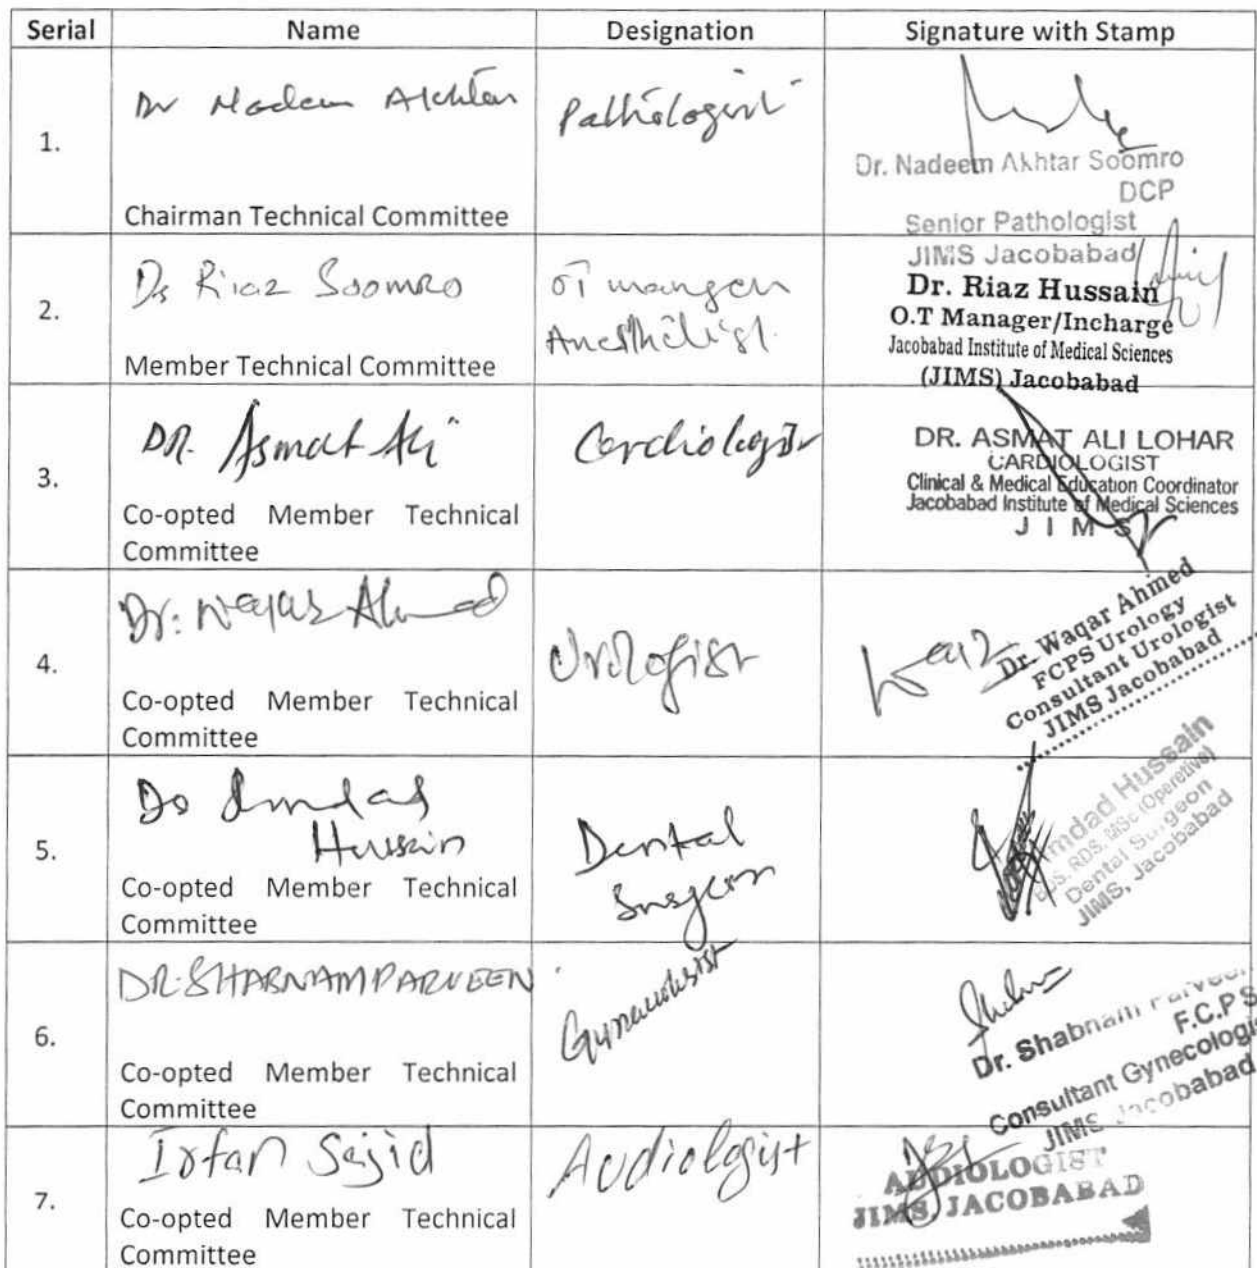 Serial Name Designation Signature with Stamp
1.
Dr Nadeem Akhtar
Chairman Technical Committee
Pathologist
Dr. Nadeem Akhtar Soomro
DCP
Senior Pathologist
JIMS Jacobabad
2.
Dr Riaz Soomro
Member Technical Committee
OT manger
Anesthetist.
Dr. Riaz Hussain
O.T Manager/Incharge
Jacobabad Institute of Medical Sciences
(JIMS) Jacobabad
3.
DR. Asmat Ali
Co-opted Member Technical
Committee
Cardiologist
DR. ASMAT ALI LOHAR
CARDIOLOGIST
Clinical & Medical Education Coordinator
Jacobabad Institute of Medical Sciences
J I M S
4.
Dr: Waqar Ahmed
Co-opted Member Technical
Committee
Urologist
Dr. Waqar Ahmed
FCPS Urology
Consultant Urologist
JIMS Jacobabad
5.
Dr Imdad
Hussain
Co-opted Member Technical
Committee
Dental
Surgeon
Imdad Hussain
BDS, RDS, MSc (Operetive)
Dental Surgeon
JIMS, Jacobabad
6.
DR. SHABNAM PARVEEN
Co-opted Member Technical
Committee
Gynaecologist
Dr. Shabnam Parveen
F.C.P.S
Consultant Gynecologis
JIMS Jacobabad
7.
Irfan Sajid
Co-opted Member Technical
Committee
Audiologist
AUDIOLOGIST
JIMS, JACOBABAD